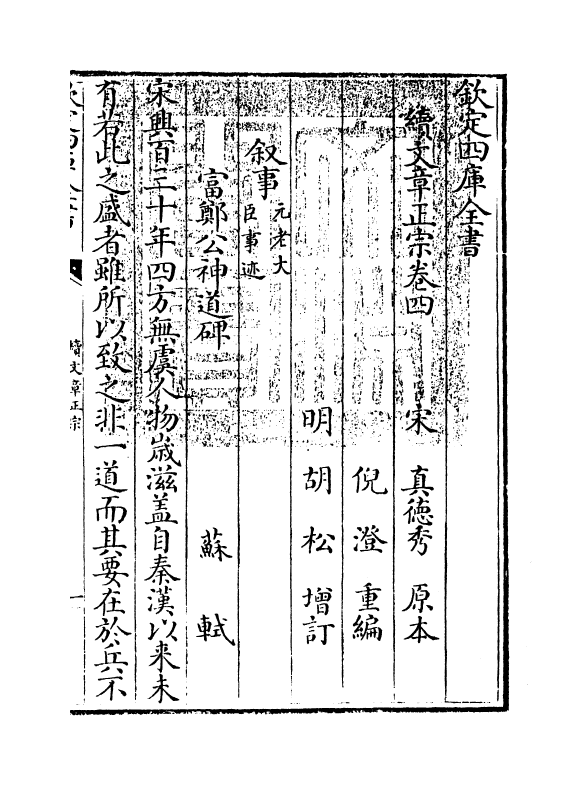 欽定四庫全書
續文章正宗卷四
宋 真徳秀 原本
倪澄 重編
明 胡松 增訂
叙事 元老大臣事迹
富鄭公神道碑 蘇軾
宋興百三十年四方無虞人物歳滋蓋自秦漢以来未
有若此之盛者雖所以致之非一道而其要在於兵不
續文章正宗
一